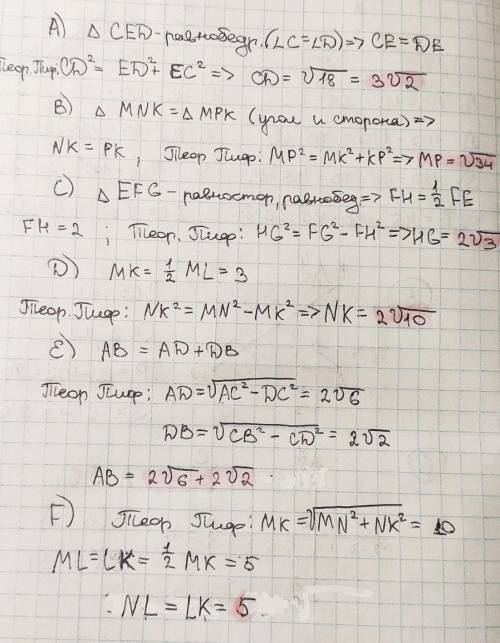 A) △ CED-равнобедр.(∠C=∠D)=> CE=DE
Теор. Пиф: CD²= ED²+ EC² => CD= √18 = 3√2
B) △ MNK = △ MPK (угол и сторона)=>
NK = PK, Теор. Пиф: MP²=MK²+KP²=> MP=√34
C) △ EFG - равностор, равнобед=> FH=½ FE
FH=2 ; Теор. Пиф: HG²=FG²-FH²=>HG=2√3
D) MK= ½ ML=3
Теор. Пиф: NK²= MN²-MK² =>NK= 2√10
E) AB = AD+DB
Теор Пиф: AD=√AC²-DC² = 2√6
DB=√CB²-CD² = 2√2
AB = 2√6+2√2
F) Теор Пиф: MK=√MN²+NK² = 10
ML=LK= ½ MK=5
NL = LK= 5